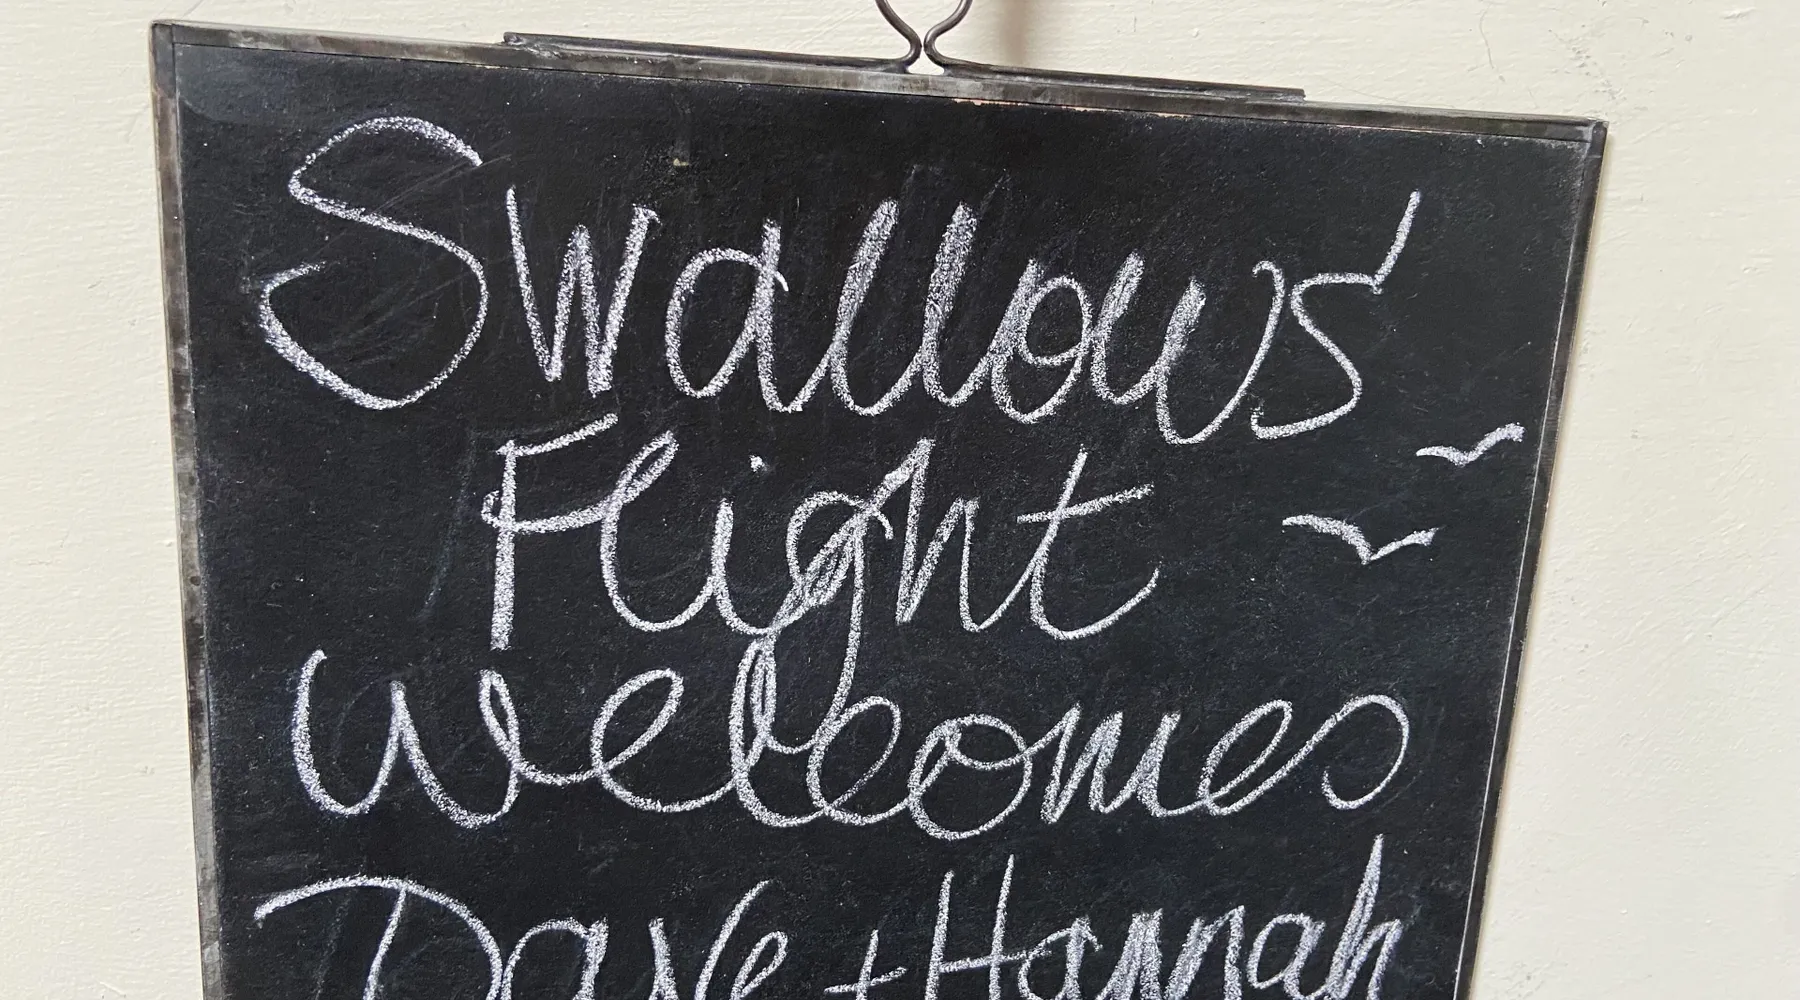 Swallows'
Flight
welcomes
Dave + Hannah